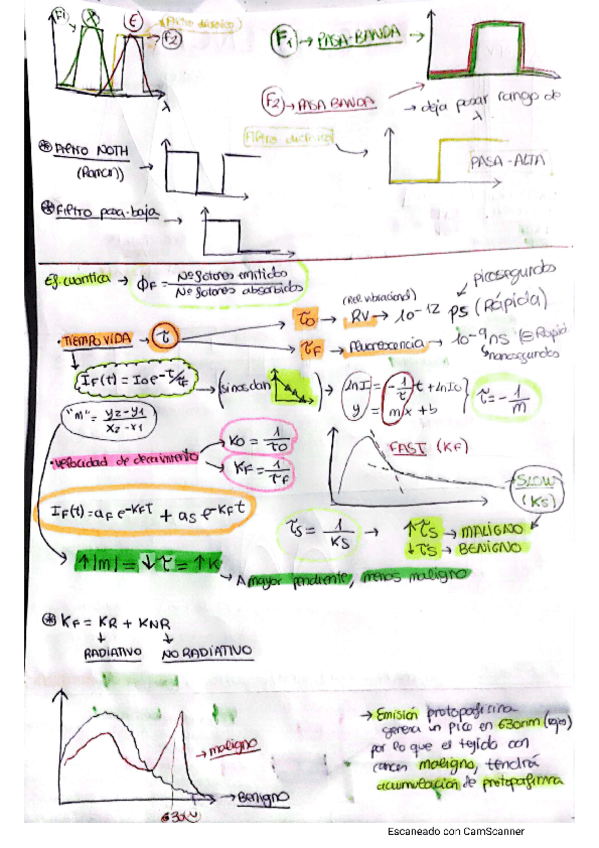 F1 X E (Filtro dicroico)
F2
λ
F1 → PASA-BANDA →
F2 → PASA BANDA → deja pasar rango de λ
Filtro dicroico → PASA-ALTA
* Filtro NOTH →
* Filtro pasa-baja →
Ef. cuantica → ΦF = Nº fotones emitidos / Nº fotones absorbidos
picosegundos
(Rel. vibracional)
τ0 → RV → 10-12 ps (Rápida)
· TIEMPO VIDA → τ
τF → Fluorescencia → 10-9 ns
nanosegundos
IF(t) = I0 e-t/τF → (si nos dan) → lnI = -1/τ t + lnI0
y = mx + b
τ = -1/m
"m" = y2-y1 / x2-x1
· velocidad de decaimiento
K0 = 1/τ0
KF = 1/τF
FAST (KF)
SLOW (KS)
IF(t) = aF e-KFt + aS e-KFt
τS = 1/KS → ↑τS → MALIGNO
↓τS → BENIGNO
↑|m| = ↓τ = ↑K
→ A mayor pendiente, menos maligno
* KF = KR + KNR
↓ ↓
RADIATIVO NO RADIATIVO
→ maligno
→ Benigno
630
→ Emisión protopofirina
genera un pico en 630nm (rojo)
por lo que el tejido con
cancer maligno, tendrá
acumulación de protopofirina
Escaneado con CamScanner